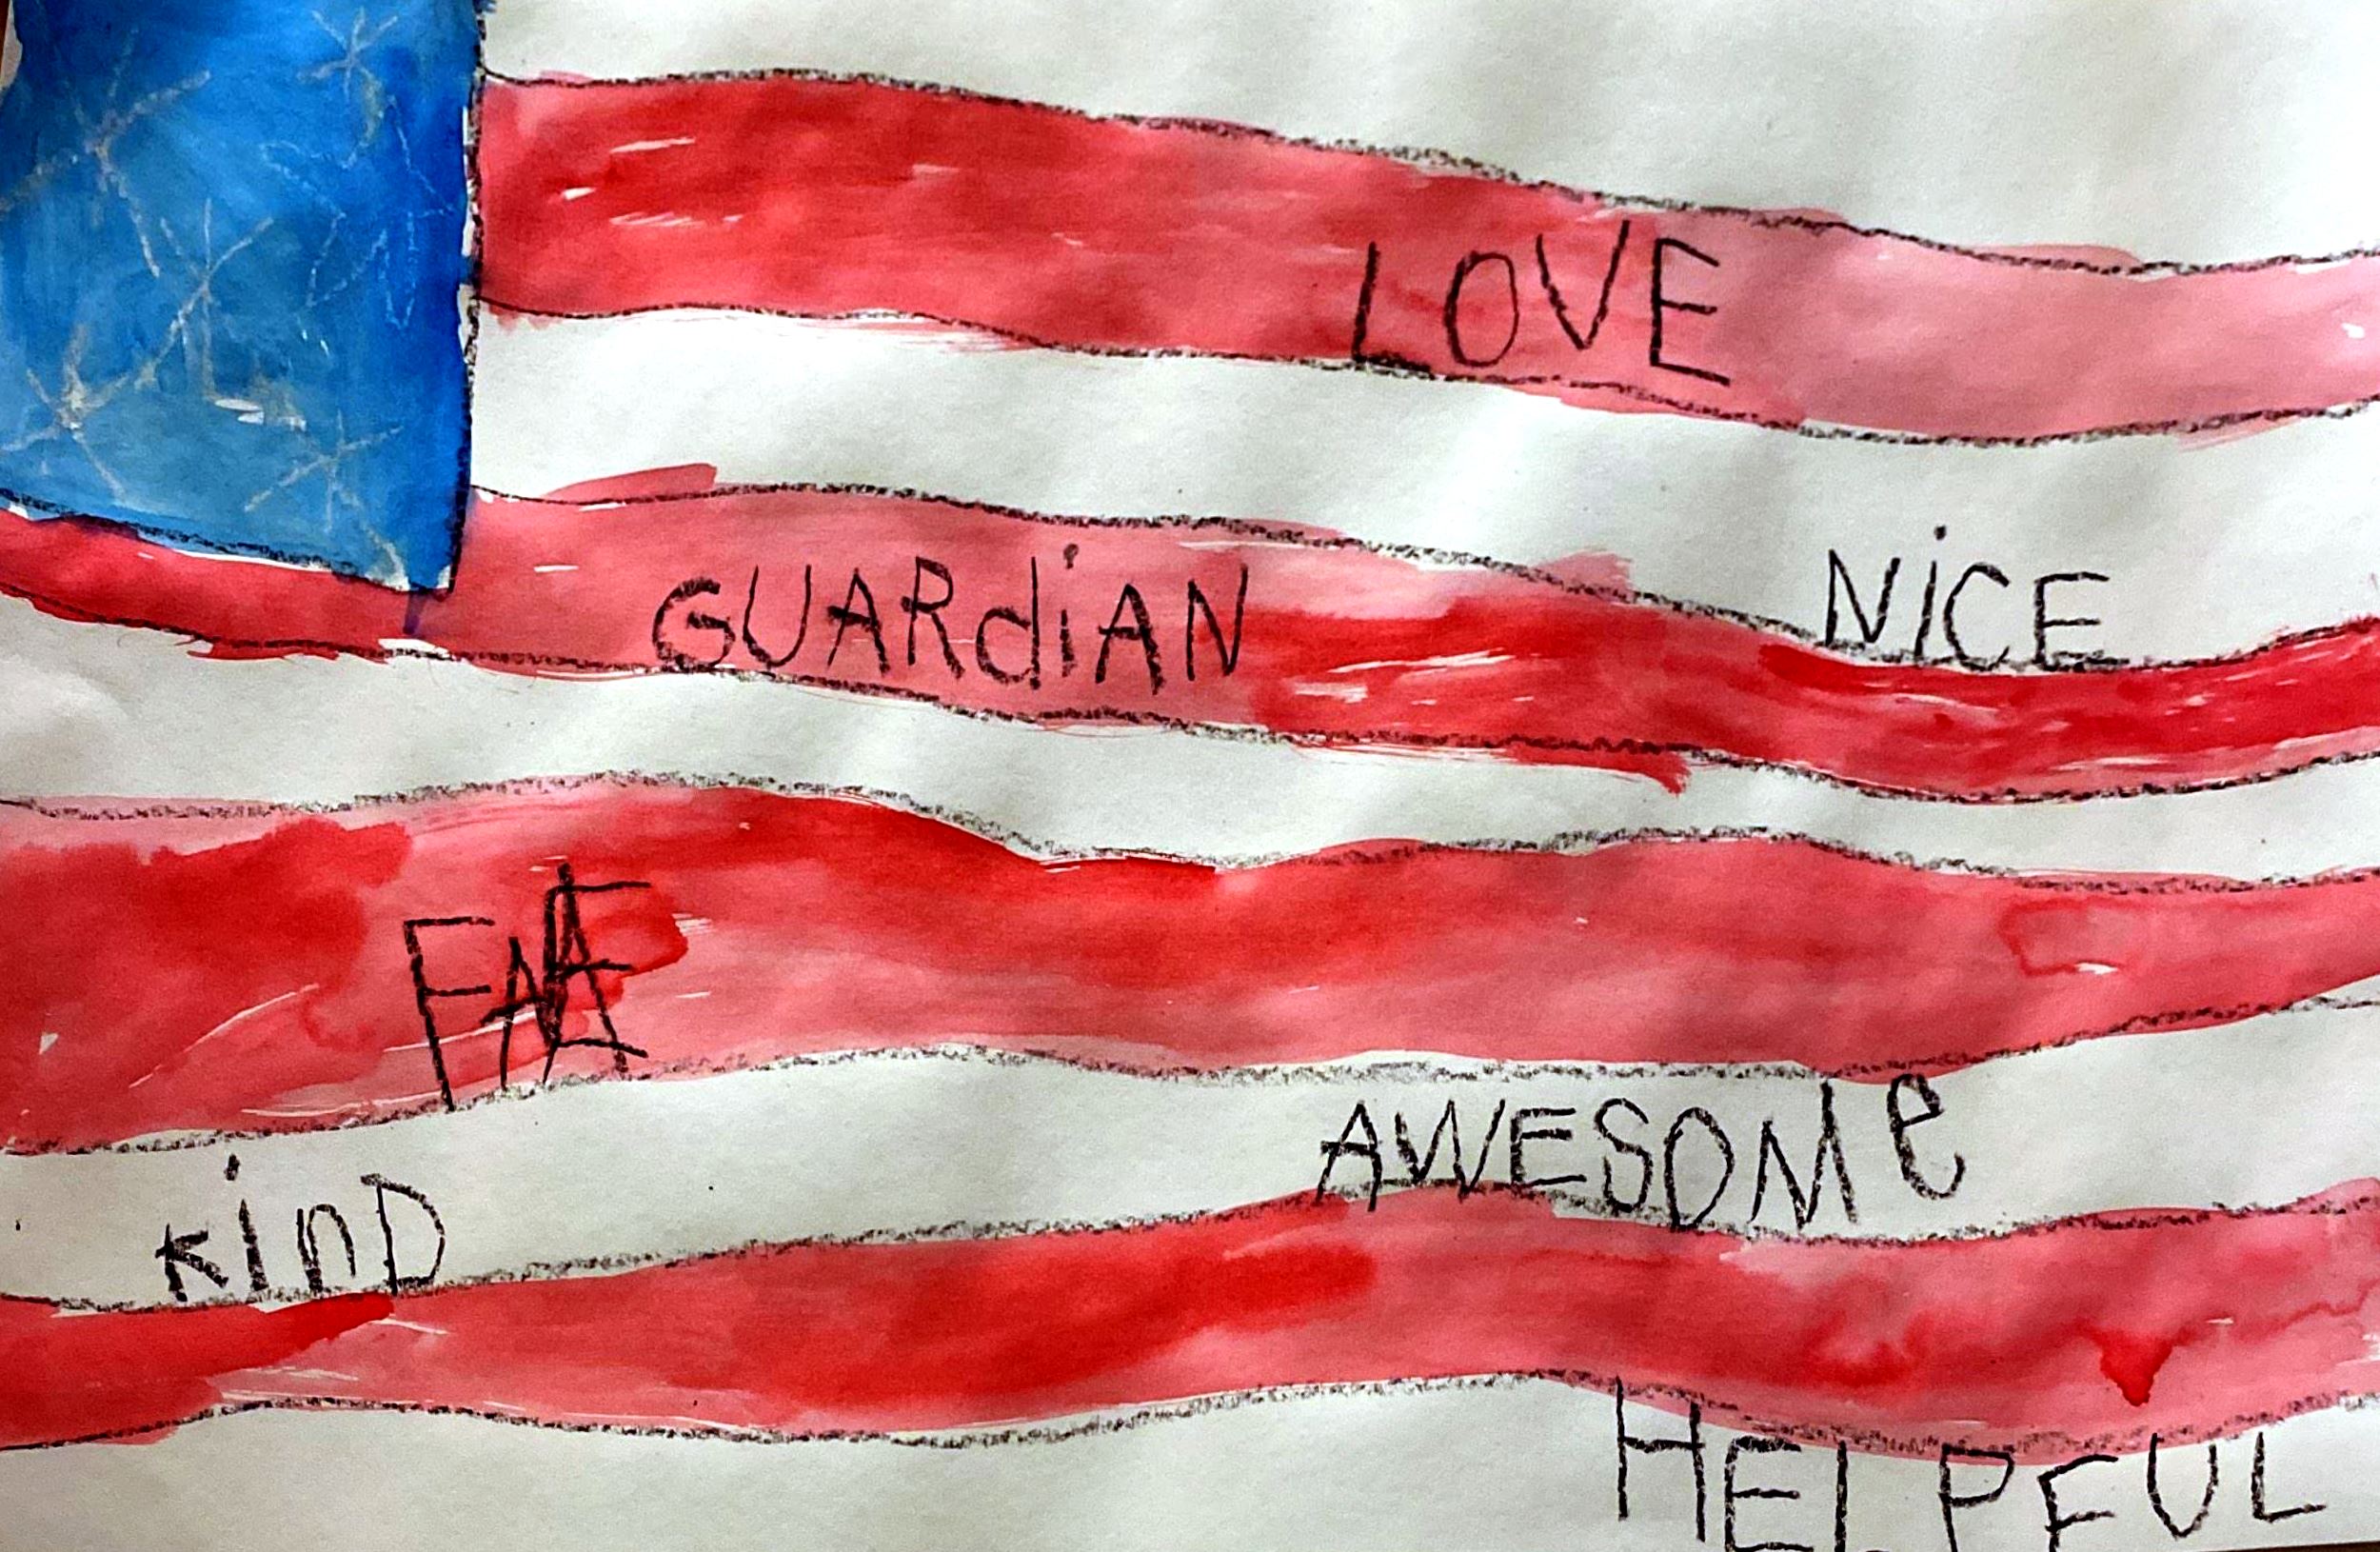 LOVE
NiCE
GUARdiAN
AWESOMe
KinD
HELPFUL